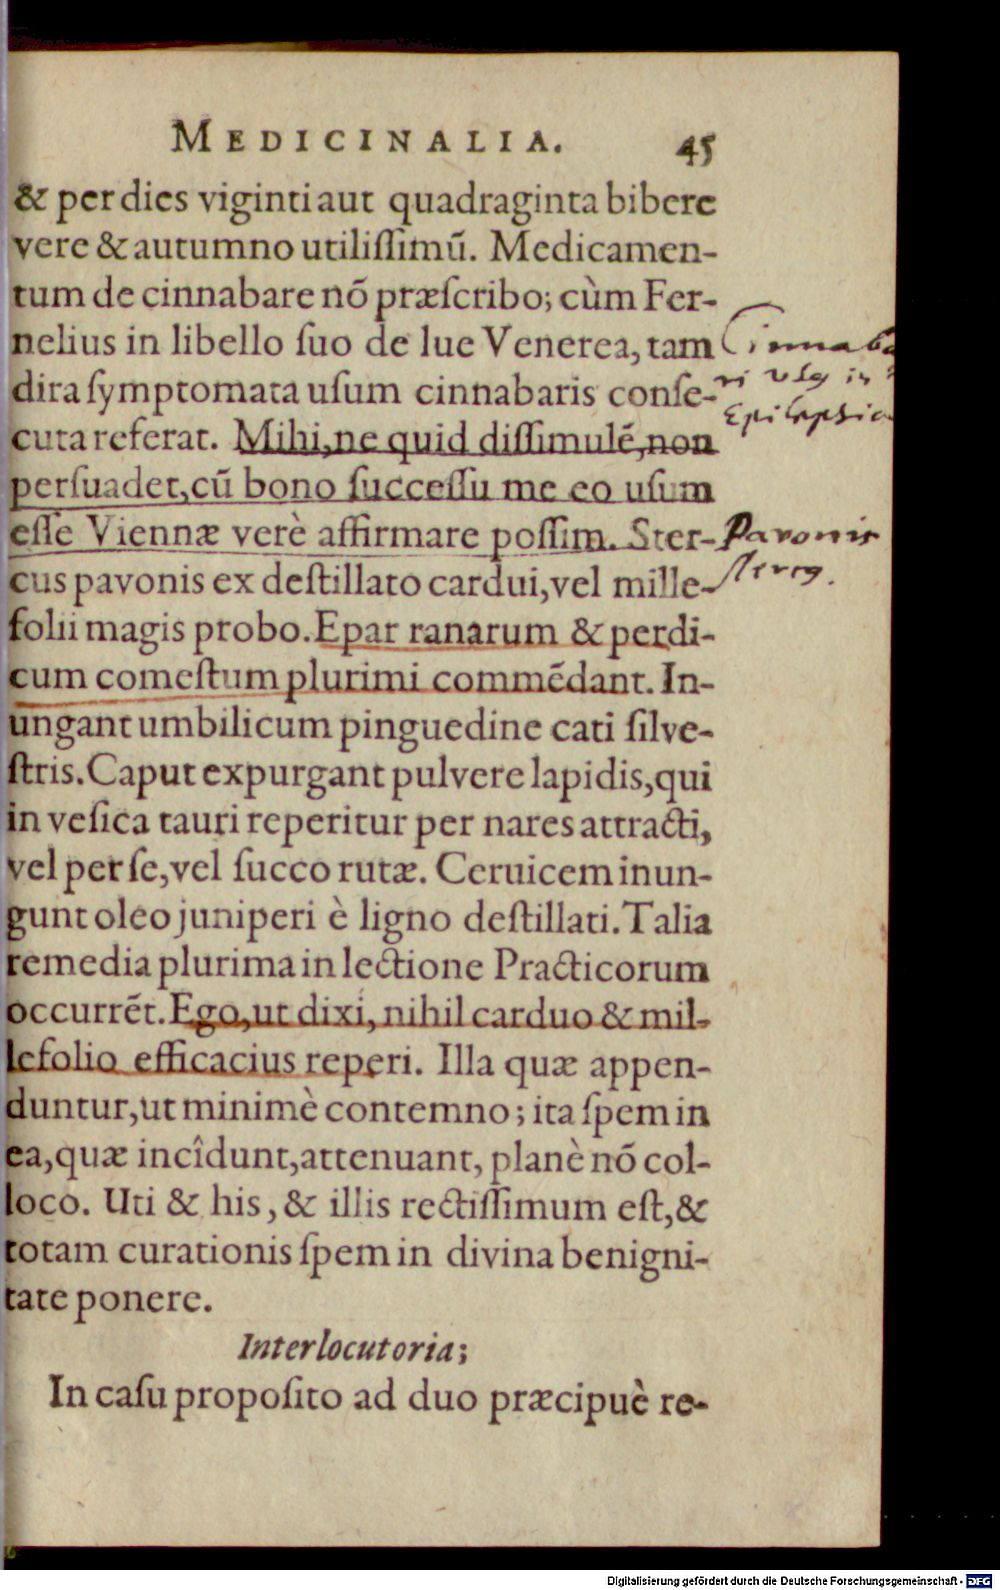 MEDICINALIA. 45
& per dies viginti aut quadraginta bibere
vere & autumno utiliſſimũ. Medicamen-
tum de cinnabare nõ præſcribo; cùm Fer-
nelius in libello ſuo de lue Venerea, tam
dira ſymptomata uſum cinnabaris conſe-
cuta referat. Mihi, ne quid diſſimulẽ, non
perſuadet, cũ bono ſucceſſu me eo uſum
eſſe Viennæ verè affirmare poſſim. Ster-
cus pavonis ex deſtillato cardui, vel mille-
folii magis probo. Epar ranarum & perdi-
cum comeſtum plurimi commẽdant. In-
ungant umbilicum pinguedine cati ſilve-
ſtris. Caput expurgant pulvere lapidis, qui
in veſica tauri reperitur per nares attracti,
vel per ſe, vel ſucco rutæ. Ceruicem inun-
gunt oleo juniperi è ligno deſtillati. Talia
remedia plurima in lectione Practicorum
occurrẽt. Ego, ut dixi, nihil carduo & mil-
lefolio efficacius reperi. Illa quæ appen-
duntur, ut minimè contemno; ita ſpem in
ea, quæ incîdunt, attenuant, planè nõ col-
loco. Uti & his, & illis rectiſſimum eſt, &
totam curationis ſpem in divina benigni-
tate ponere.
Interlocutoria;
In caſu propoſito ad duo præcipuè re-
Cinnaba
ri usq in
Epilepsia
Pavonis
sterq.
Digitalisierung gefördert durch die Deutsche Forschungsgemeinschaft - DFG